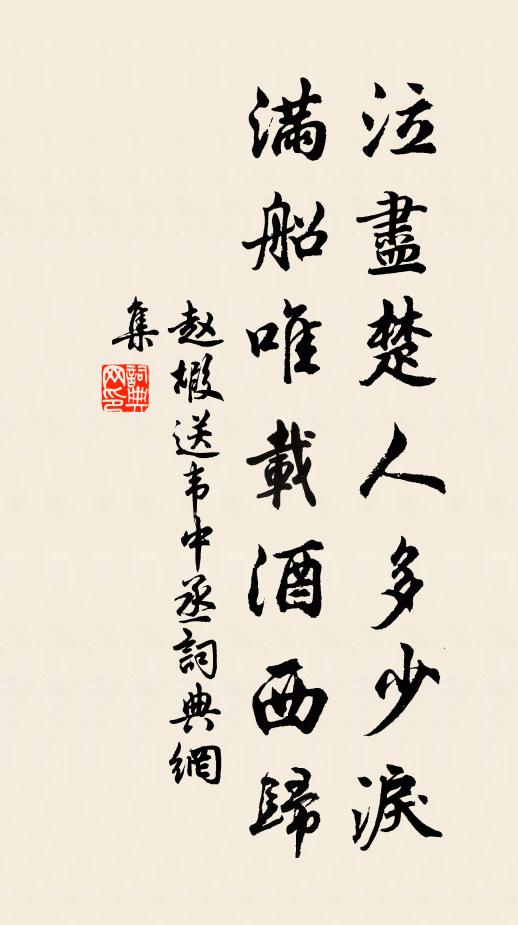 泣盡楚人多少淚
滿船唯載酒西歸
赵嘏送韦中丞詞典網
集
詞典
网印